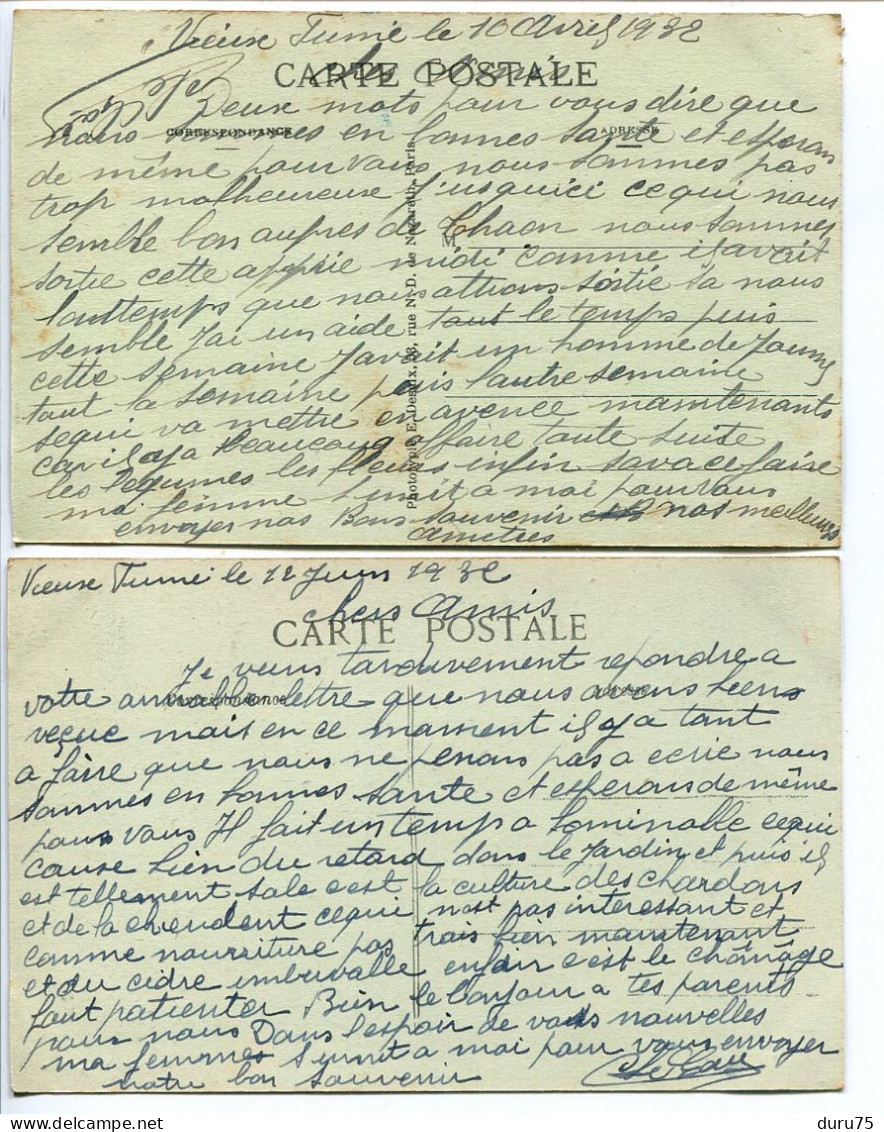 Vieux Fumé le 10 Avril 1932
CARTE POSTALE
Chers Amis
Deux mots pour vous dire que
CORRESPONDANCE
ADRESSE
nous sommes en bonnes sante et esperons
de même pour vous nous sommes pas
trop malheureuse J'usquici cequi nous
semble bon aupres de Chaon nous sommes
M
sortie cette apprie midi comme il avait
lonttemps que nous attions sortie sa nous
semble J'ai un aide tout le temps puis
cette semaine J'avait un homme de Journ
tout la semaine puis l'autre semaine
sequi va mettre en avence maintenants
car il y a beaucoup affaire toute suite
les legumes les fleurs enfin sava ce faire
ma femme s'unit a moi pour vous
envoyer nos Bons souvenir nos meilleures
amities
Phototypie E. Desaix, rue N.-D. de Nazareth, Paris
Vieux Fumé le 12 Juin 1932
chers Amis
CARTE POSTALE
Je viens tardivement repondre a
votre amiable lettre que nous avons bien
Correspondance
Adresse
reçue mais en ce moment il y a tant
a faire que nous ne penons pas a ecrie nous
sommes en bonnes sante et esperons de même
pour vous Il fait un temp a bominable cequi
cause bien du retard dans le Jardin et puis il
est tellement sale c'est la culture des chardons
et de la chendent cequi n'ast pas interessant et
comme nourriture pas trais bien maintenant
et du cidre imbuvalle enfain c'est le chômage
faut patienter Bien le bonjour a tes parents
pour nous Dans l'espoir de vos nouvelles
ma femmes s'unnit a moi pour vous envoyer
notre bon souvenir
duru75